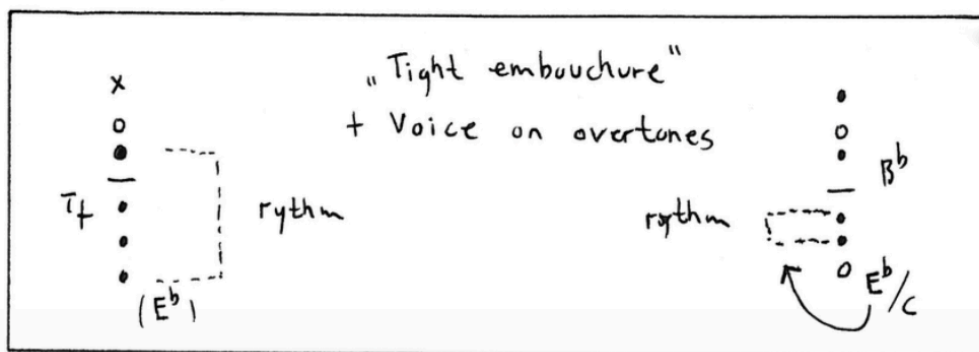 „Tight embouchure"
+ Voice on overtones
x
Tf
rythm
(E♭)
B♭
rythm
E♭/C